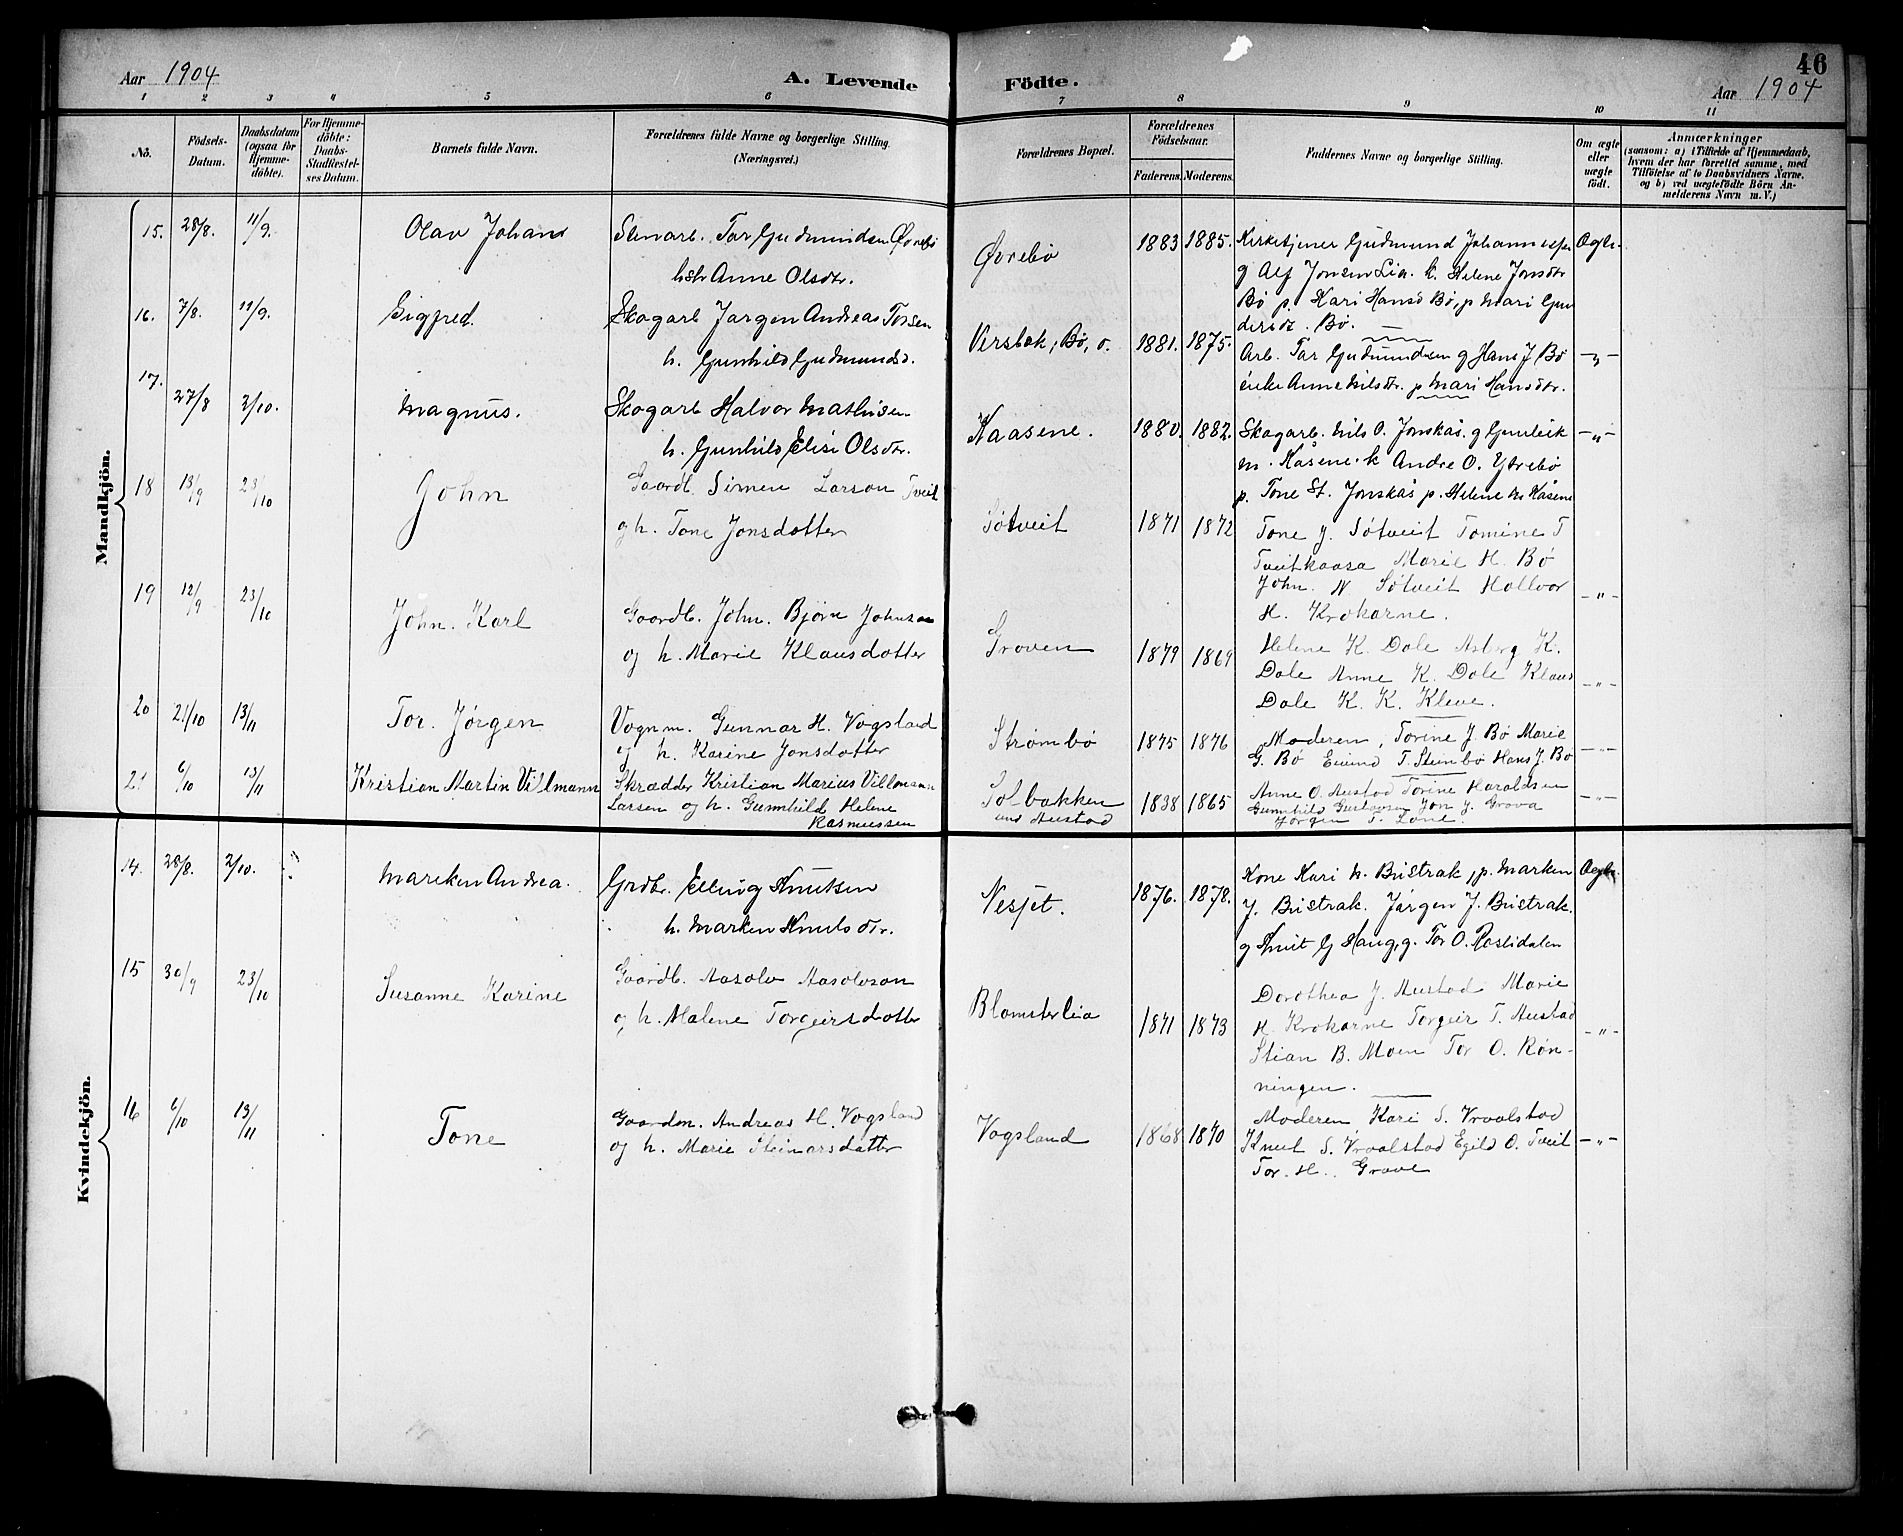 46
Aar 1904
A. Levende Födte.
Aar 1904
1 2 3 4 5 6 7 8 9 10 11
No.
Födsels-Datum.
Daabsdatum (ogsaa for Hjemme-döbte).
For Hjemme-döbte: Daabs-Stadfæstel-ses Datum.
Barnets fulde Navn.
Forældrenes fulde Navne og borgerlige Stilling.
(Næringsvei.)
Forældrenes Bopæl.
Forældrenes Födselsaar.
Faderens. Moderens.
Faddernes Navne og borgerlige Stilling.
Om ægte eller uægte födt.
Anmærkninger
(saasom: a) i Tilfælde af Hjemmedaab,
hvem der har forrettet samme, med
Tilföielse af to Daabsvidners Navne,
og b) ved uægtefödte Börn An-
melderens Navn m. V.)
Mandkjön.
15. 28/8. 11/9. Olav Johan
Stenarb. Tor Gudmundsen Øvrebö
hstr Anne Olsdtr.
Øvrebö 1883 1885.
Kirketjener Gudmund Johannesen
g Alf Jonsen Lia. k. Helene Jonsdtr
Bö p. Kari Hansd Bö, p Mari Gun
dersd. Bö.
Ægte.
16. 7/8. 11/9. Sigfred.
Skogarb Jørgen Andreas Torsen
h. Gunhild Gudmundsd.
Versbek, Bö, o. 1881. 1875.
Arb. Tor Gudmundsen g Hans J Bö
enke Anne Nilsdtr. p Mari Hansdtr.
-"-
17. 27/8 2/10. Magnus.
Skogarb Halvor Mathisen
h. Gunhild Elise Olsdtr.
Kaasene. 1880. 1882.
Skogarb. Nils O. Jonskås. g Gunleik
m. Kåsene. k Andre O. Ytrebö
p. Tone St. Jonskås p. Helene m Kåsene
-"-
18 13/9 23/10 John
Gaardb. Simen Larson Tveit
og h. Tone Jonsdotter
Søtveit 1871 1872
Tone J. Søtveit Tomine T
Tveitkaasa Marie H. Bö
John. N Søtveit Hallvor
H. Krokarne.
-"-
19 12/9 23/10 John. Karl
Gaardb. John. Bjørn Johnson
og h. Marie Klausdotter
Groven 1879 1869
Helene K. Dale Asberg K.
Dale Anne K. Dale Klaus
Dale K. K. Kleve.
-"-
20 21/10 13/11 Tor. Jørgen
Vognm. Gunnar H. Vogsland
og h. Karine Jonsdotter
Strømbö 1875 1876
Moderen, Torine J. Bö Marie
G. Bö Eivind T. Steinbö Hans J. Bö
-"-
21 6/10 13/11 Kristian Martin Villmann
Skrædder Kristian Marius Villmann
Larsen og h. Gunnhild Helene
Rasmussen
Solbakken
und Austad 1838 1865
Anne O. Austad Torine Haraldsen
Gunnhild Gustavsen Jon J. Grova
Jørgen T. Lone.
-"-
Kvindekjön.
14. 28/8. 2/10. Mareken Andrea.
Grdbr. Elling Knutsen
h. Marken Knutsdtr.
Nesjet. 1876. 1878.
Kone Kari h. Bristrak, p. Marken
J. Bristrak. Jørgen J. Bristrak.
g Knut G Haug, g. Tor O. Roslidalen
Ægte.
15 30/9 23/10 Susanne Karine
Gaardb. Aasolv Aasolvson
og h. Malene Torgeirsdotter
Blomsterlia 1871 1873
Dorothea J. Austad Marie
H. Krokarne Torgeir T. Austad
Stian B. Moen Tor O. Røn-
ningen.
-"-
16 6/10 13/11 Tone
Gaardm. Andreas H. Vogsland
og h. Marie Steinarsdotter
Vogsland 1868 1870
Moderen Kari S. Vraalstad
Knut S. Vraalstad Egild O. Tveit
Tor. H. Grave
-"-